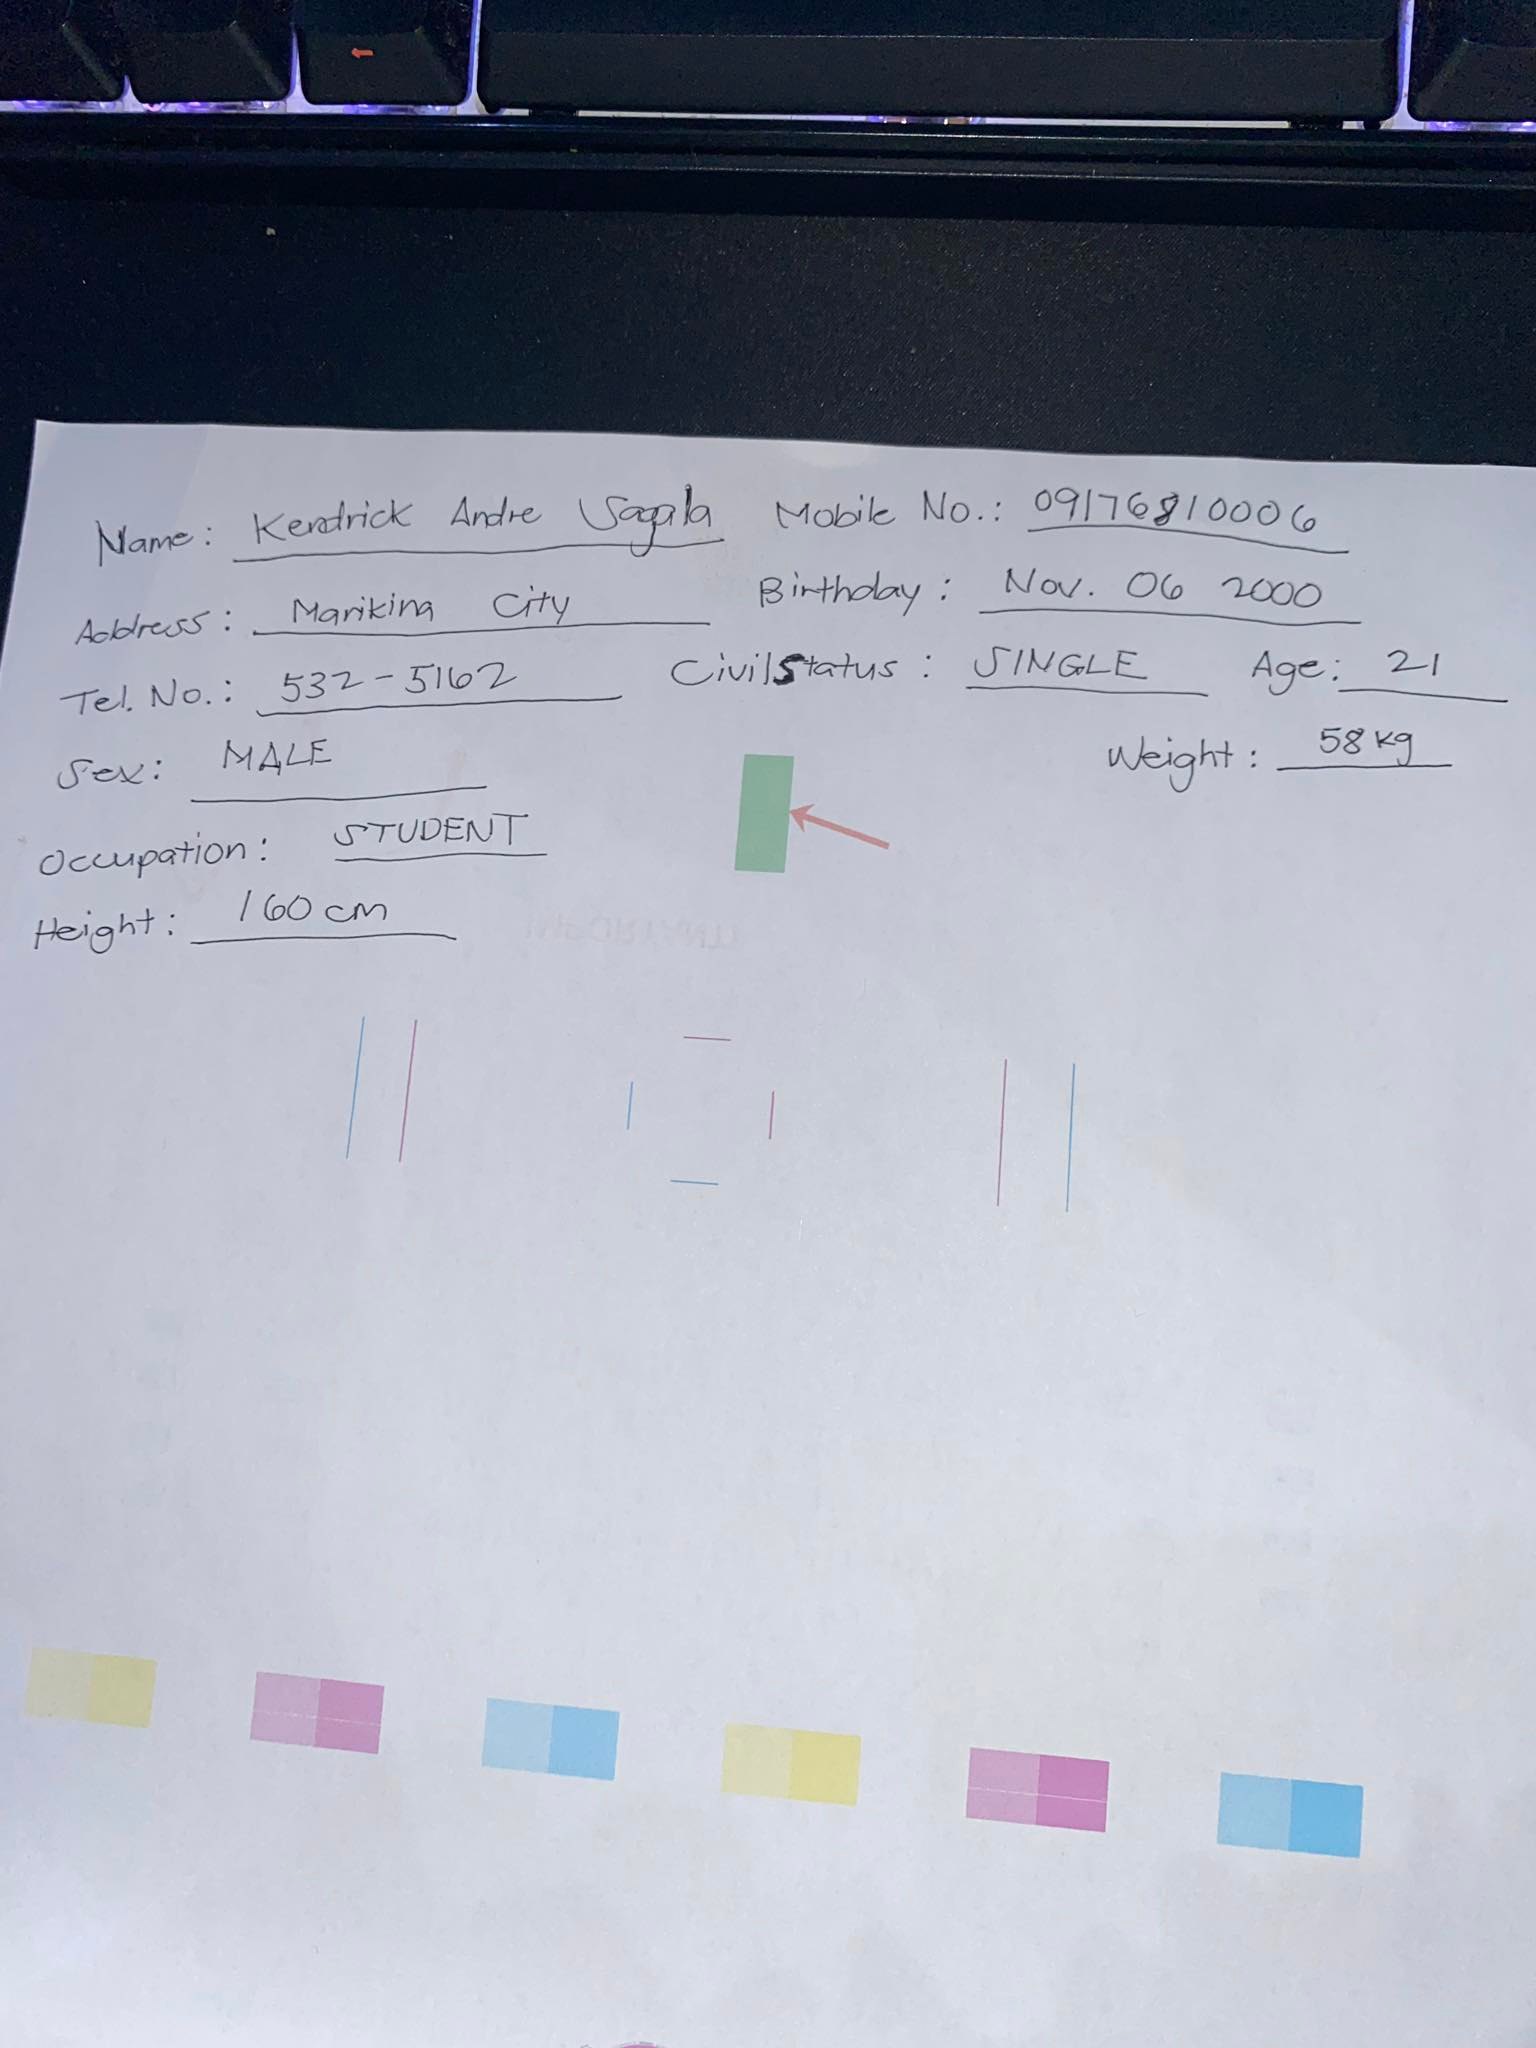 Name: Kendrick Andre Sagala Mobile No.: 09176810006
Address: Marikina City Birthday: Nov. 06 2000
Tel. No.: 532-5162 Civil Status: SINGLE Age: 21
Sex: MALE Weight: 58 kg
Occupation: STUDENT
Height: 160 cm